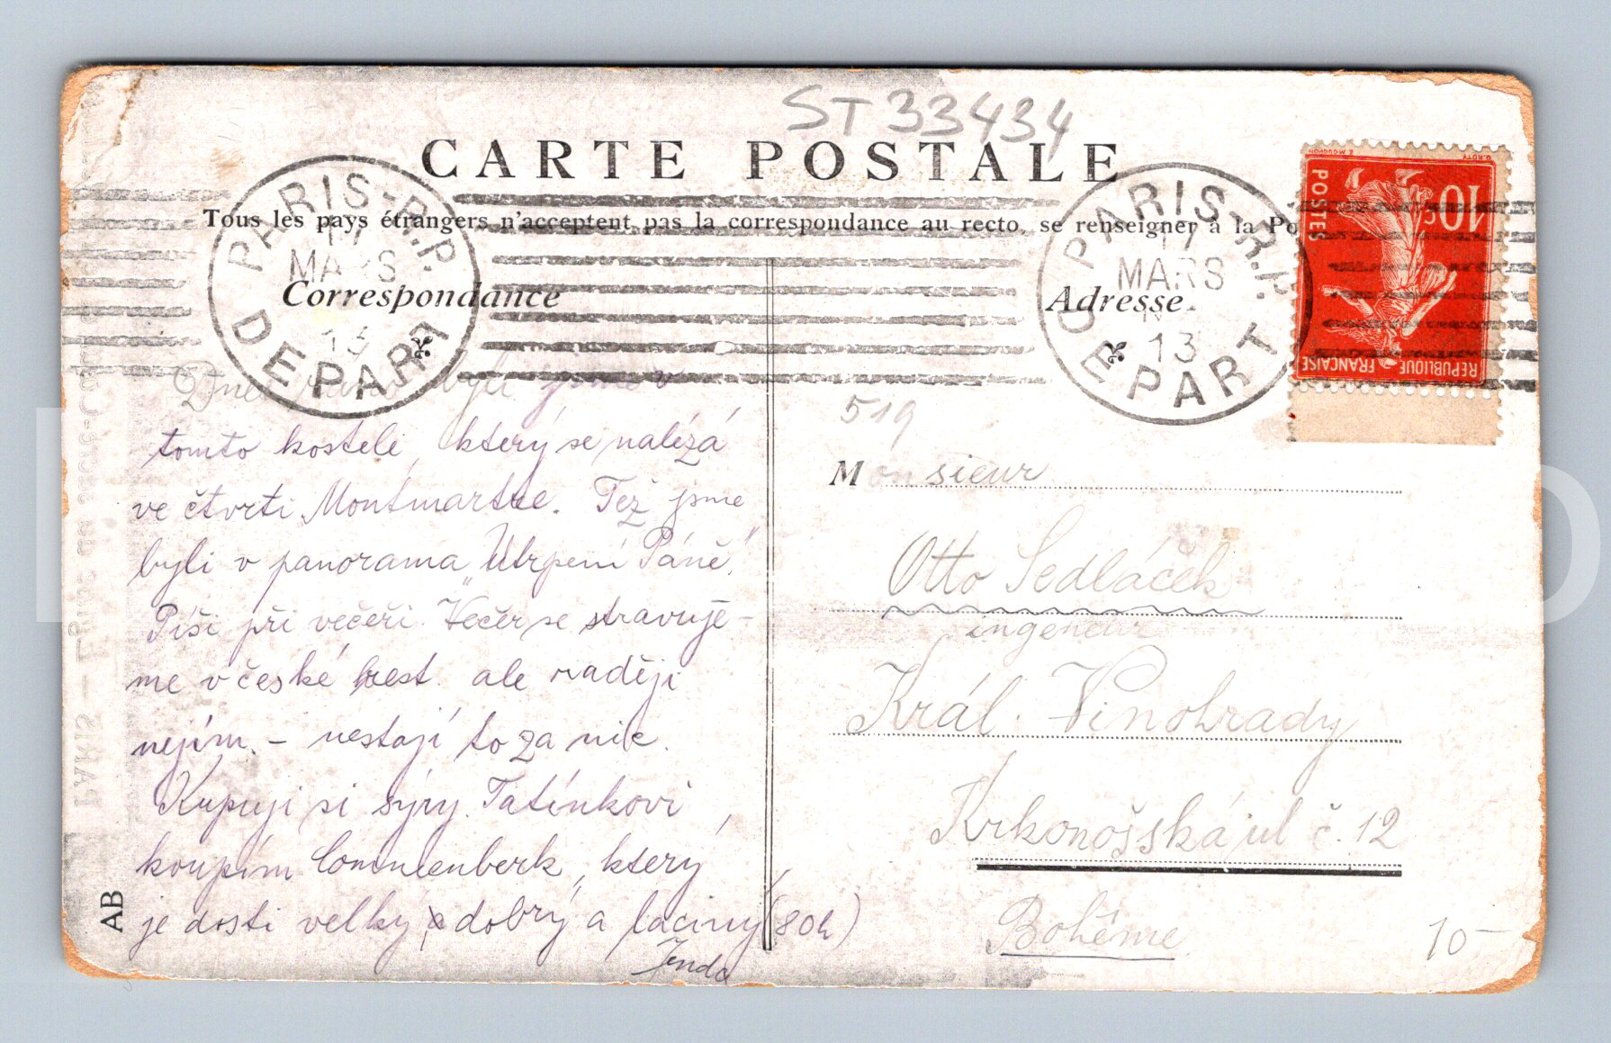 ST 33434
CARTE POSTALE
Tous les pays étrangers n'acceptent pas la correspondance au recto, se renseigner à la Po
PARIS-R.P.
17
MARS
13
DEPART
PARIS-R.P.
17
MARS
13
DEPART
10
c
POSTES
REPUBLIQUE FRANÇAISE
Correspondance
Adresse
Dnes byli jsme v
tomto kostele, který se nalézá
ve čtvrti Montmartre. Též jsme
byli v panorama „Utrpení Páně“.
Píši při večeři. Večer se stravuje-
me v české rest. ale raději
nejím. – nestojí to za nic.
Kupuji si sýry. Tatínkovi
koupím Commenberk, který
je dosti velký, dobrý a laciný (80h)
Jenda
519
Monsieur
Otto Sedláček
ingeneur
Král. Vinohrady
Krkonošská ul č. 12
Bohême
10-
AB